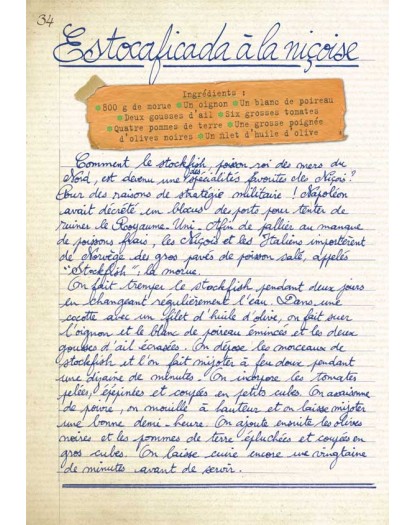 34
Estocaficada à la niçoise
Ingrédients :
500 g de morue Un oignon Un blanc de poireau
Deux gousses d'ail Six grosses tomates
Quatre pommes de terre Une grosse poignée
d'olives noires Un filet d'huile d'olive
Comment le stockfish, poisson roi des mers du
Nord, est devenu une des spécialités favorites des Niçois ?
Pour des raisons de stratégie militaire ! Napoléon
avait décrété un blocus de ports pour tenter de
ruiner le Royaume-Uni. Afin de pallier au manque
de poissons frais, les Niçois et les Italiens importèrent
de Norvège des gros pavés de poisson salé, appelés
"Stockfish" : la morue.
On fait tremper le stockfish pendant deux jours
en changeant régulièrement l'eau. Dans une
cocotte avec un filet d'huile d'olive, on fait suer
l'oignon et le blanc de poireau émincés et les deux
gousses d'ail écrasées. On dépose les morceaux de
stockfish et l'on fait mijoter à feu doux pendant
une dizaine de minutes. On incorpore les tomates
pelées, épépinées et coupées en petits cubes. On assaisonne
de poivre, on mouille à hauteur et on laisse mijoter
une bonne demi-heure. On ajoute ensuite les olives
noires et les pommes de terre épluchées et coupées en
gros cubes. On laisse cuire encore une vingtaine
de minutes avant de servir.